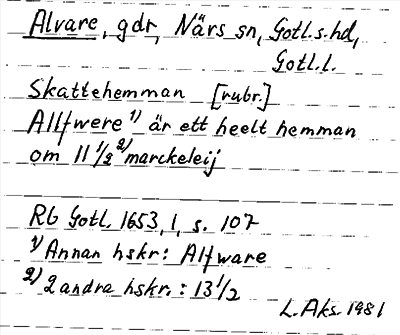 Alvare, gdr, Närs sn, Gotl.s.hd,
Gotl.l.
Skattehemman [rubr.]
Allfwere 1) är ett heelt hemman
om 11 1/2 2) marckeleij
Rb Gotl. 1653, 1, s. 107
1) Annan hskr: Alfware
2) 2 andra hskr.: 13 1/2
L.Aks. 1981